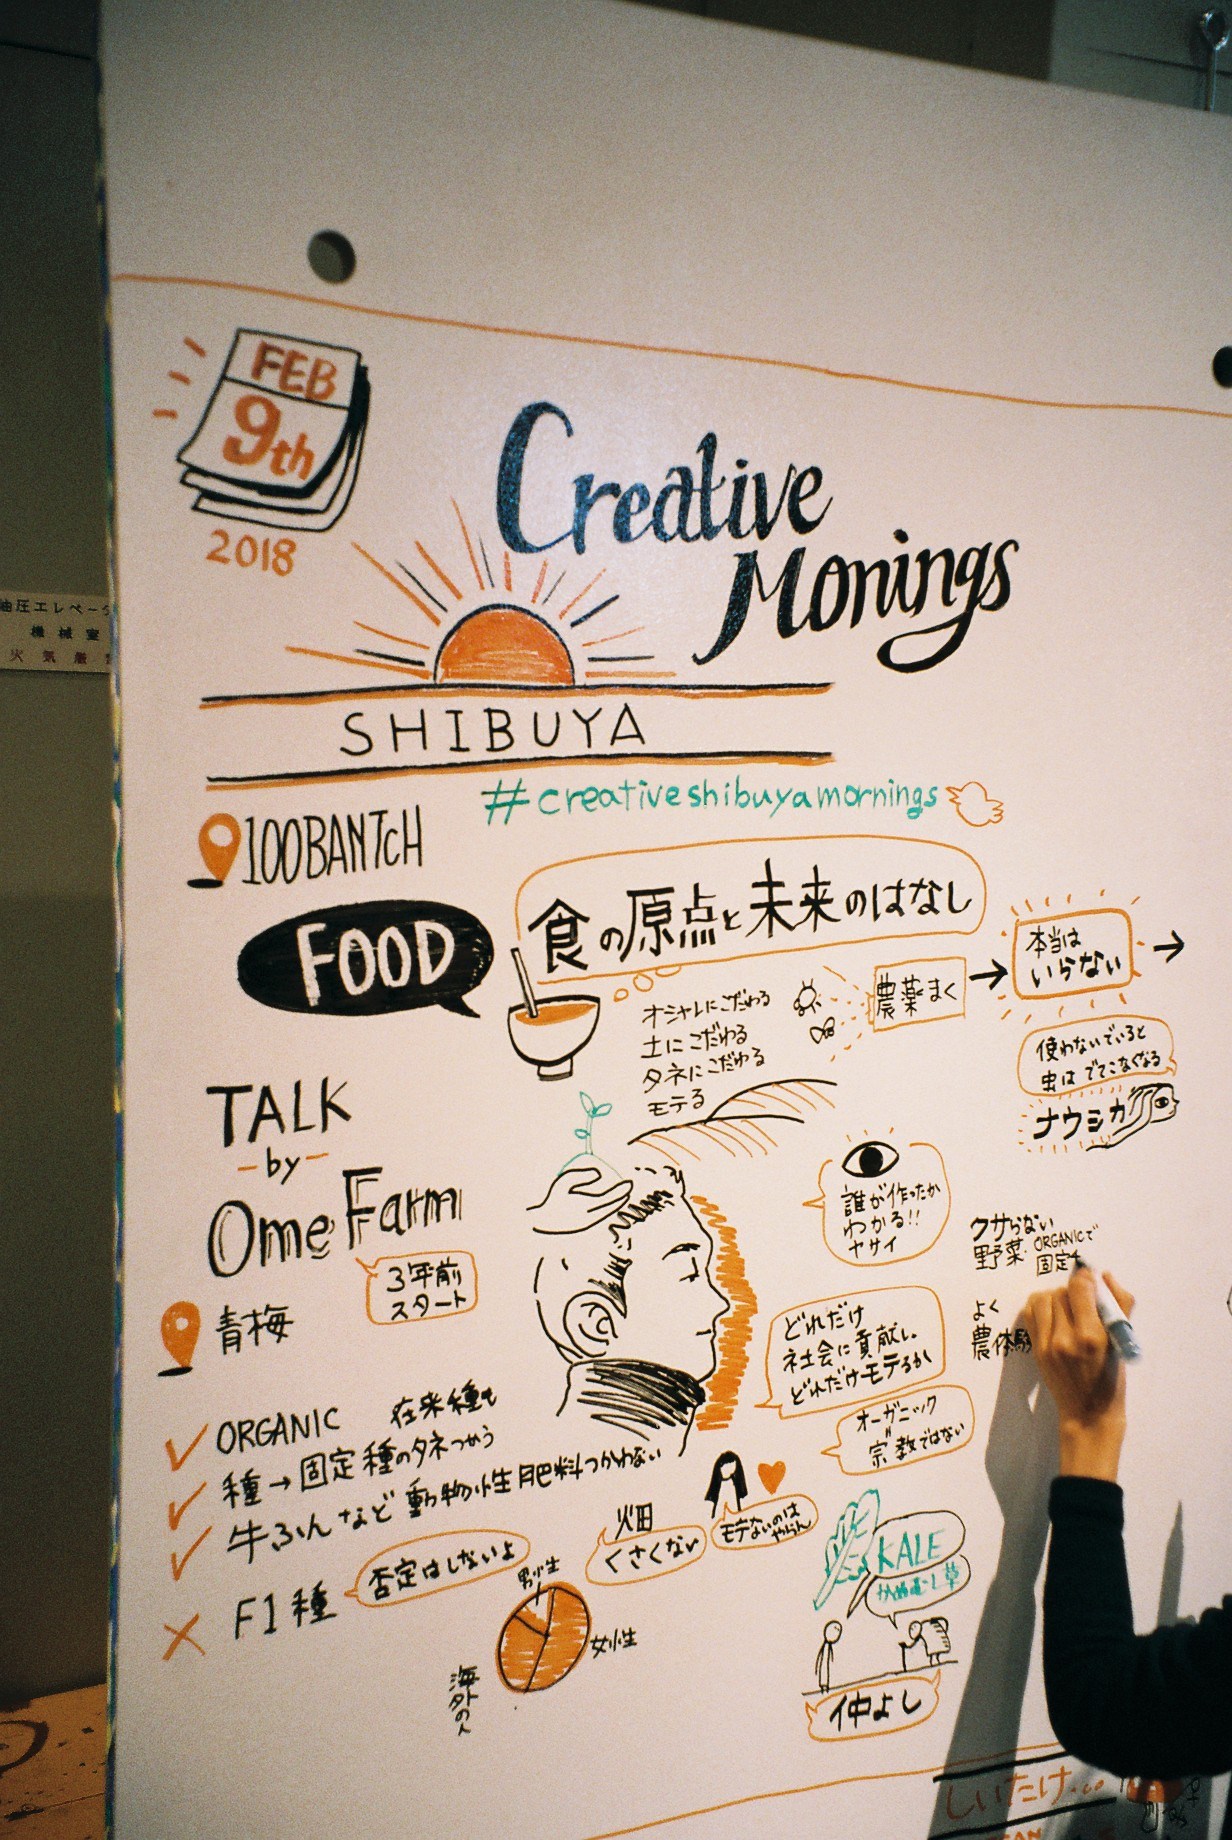 FEB
9th
2018
Creative
Monings
SHIBUYA
#creativeshibuyamornings
100BANTCH
FOOD
食の原点と未来のはなし
オシャレにこだわる
土にこだわる
タネにこだわる
モテる
農薬まく
本当は
いらない
使わないでいると
虫はでてこなくなる
ナウシカ
TALK
-by-
Ome Farm
3年前
スタート
青梅
誰が作ったか
わかる!!
ヤサイ
クサらない
野菜
ORGANICで
固定
よく
農体験
どれだけ
社会に貢献し、
どれだけモテるか
オーガニック
宗教ではない
ORGANIC
在来種も
種→固定種のタネつかう
牛ふんなど動物性肥料つかわない
F1種
否定はしないよ
畑
くさくない
モテないのは
やらん
男性
女性
海外の人
KALE
仲よし
しいたけ.co
油圧エレベータ
機械室
火気厳